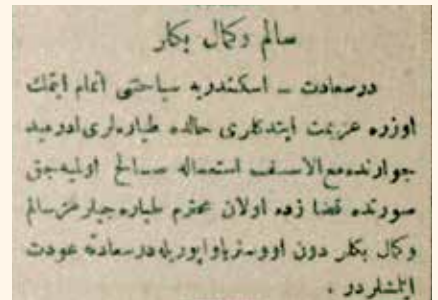 سالم وكمال بكلر
درسعادت ــ اسكندريه سياحتنى اتمام ايتمك
اوزره عزيمت ايتدكلرى حالده طياره‌لرى ادرميد
جوارنده مع‌الاسف استعماله صالح اوليه‌جق
صورتده قضا زده اولان محترم طياره‌جيلرمز سالم
وكمال بكلر دون اووستريا واپوريله درسعادته عودت
ايتمشلردر .